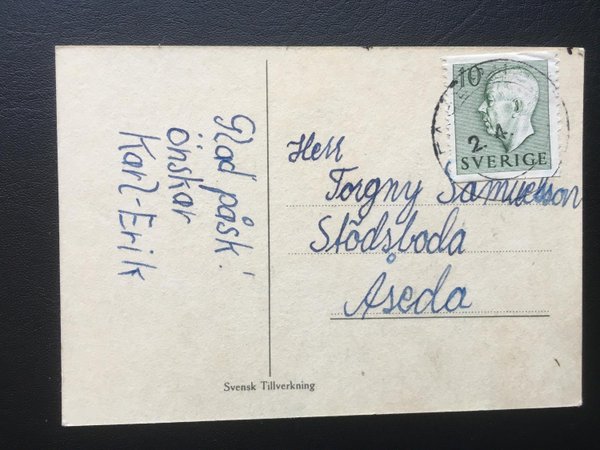 Glad påsk!
önskar
Karl-Erik
10
2.4.
SVERIGE
Herr
Torgny Samuelsson
Stödsboda
Åseda
Svensk Tillverkning